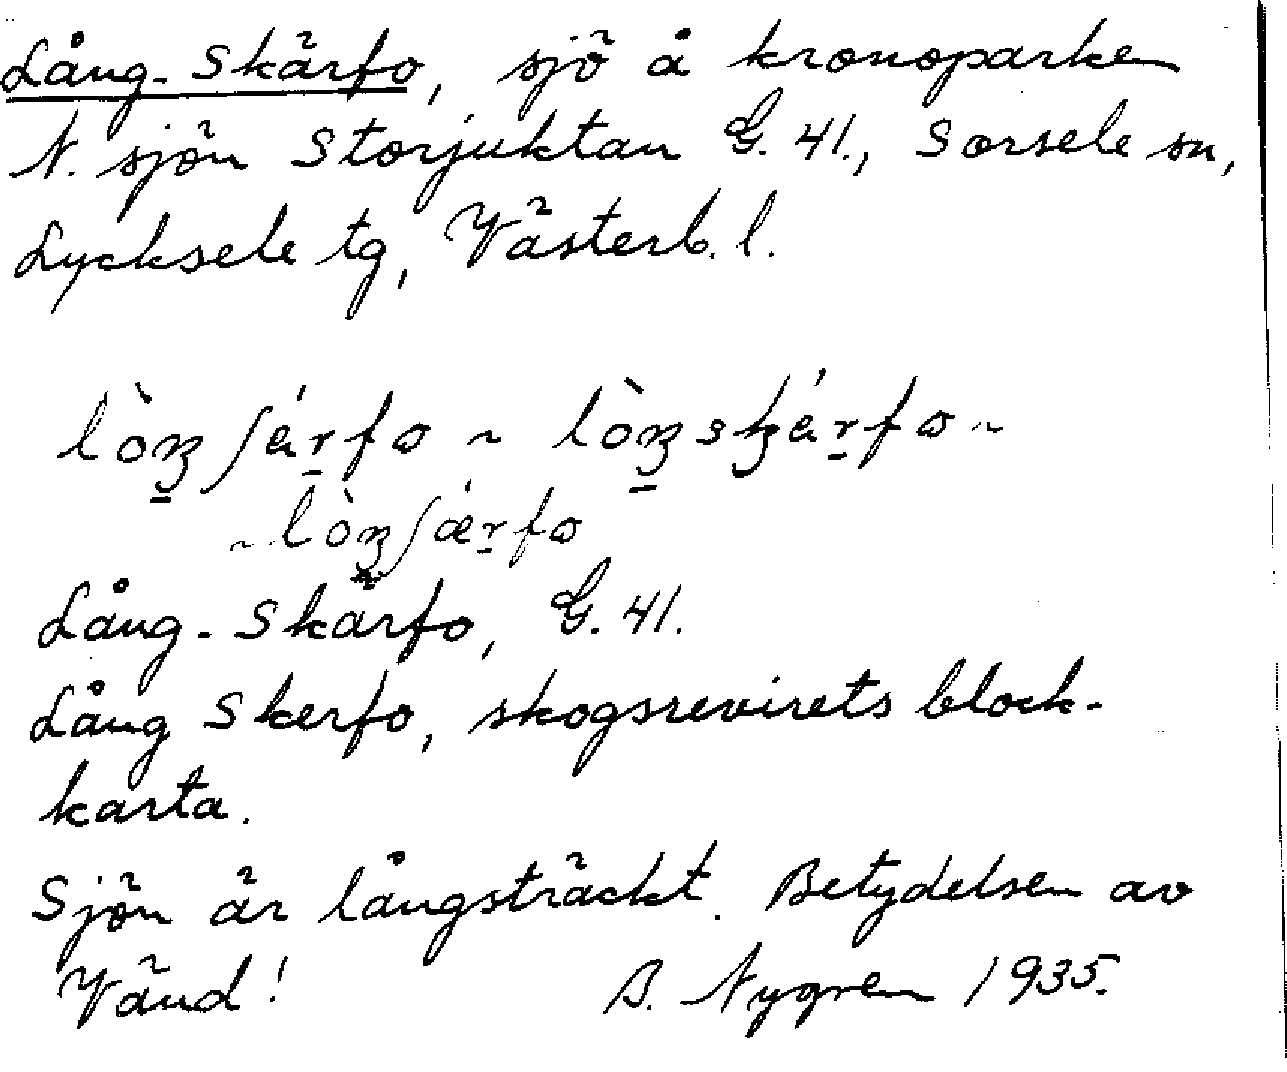 Lång-Skärfo, sjö å kronoparken
N. sjön Storjuktan G. 41., Sorsele sn,
Lycksele tg, Västerb. l.
Lång-Skärfo, G. 41.
Lång Skerfo, skogsrevirets block-
karta.
Sjön är långsträckt. Betydelsen av
Vänd! B. Nygren 1935.